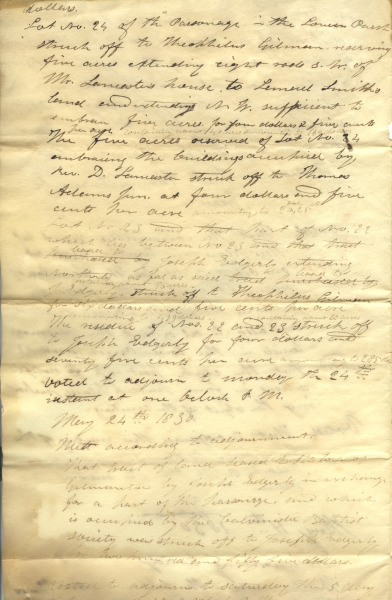 dollars.
Lot No. 24 of the Parsonage in the Lower Parish
struck off to Theophilus Gilman, reserving
five acres extending eight rods S. W. of
Mr. Lancaster's house, to Lemuel Smith's
land and extending N. W. sufficient to
embrace five acres for four dollars & five cents
per acre
The five acres reserved of Lot No. 24
embracing the buildings occupied by
Rev. D. Lancaster struck off to Thomas
Adams Jun. at four dollars and five
cents per acre
Lot No. 23 and that part of No. 22
which lies between No 23 and that tract
Joseph Edgerly extending
as far as said
struck off to Theophilus Gilman
for six dollars and five cents per acre
The residue of Nos. 22 and 23 struck off
to Joseph Edgerly for four dollars and
seventy five cents per acre
Voted to adjourn to monday the 24th
instant at one Oclock P. M.
May 24th 1830
Mett according to adjournment.
That tract of land
Gilmanton by Joseph Edgerly in exchange
for a part of the Parsonage, and which
is occupied by the Calvinistic Baptist
society was struck off to Joseph Edgerly
and fifty five dollars.
Voted to adjourn to Saturday the 5 day